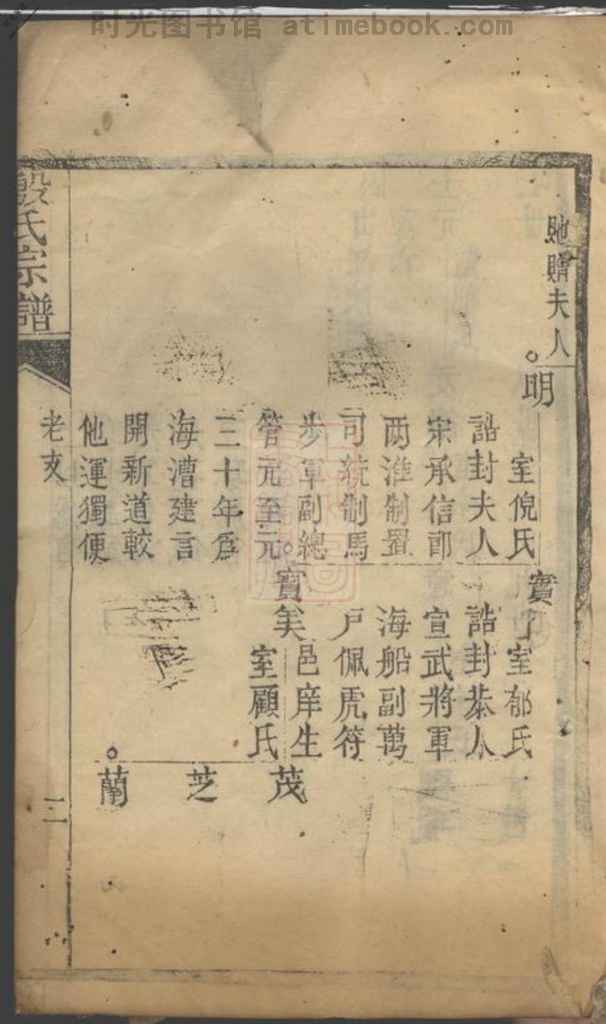 时光图书馆 atimebook.com
馳贈夫人
明
室倪氏
誥封夫人
宋承信郎
两淮制置
司統制馬
步軍副總
管元至元
三十年爲
海漕建言
開新道較
他運獨便
實
室郁氏
誥封恭人
宣武將軍
海船副萬
户佩虎符
實
邑庠生
室顧氏
茂
芝
蘭
殷氏宗譜
老支
二